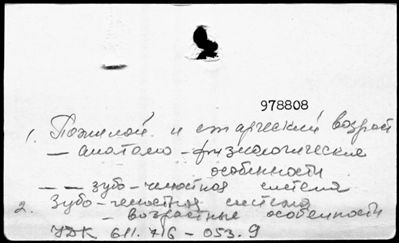 978808
1. Пожилой и старческий возраст
— анатомо-физиологические
особенности
— — зубо-челюстная система
2. Зубо-челюстная система
— возрастные особенности
УДК 611.716-053.9